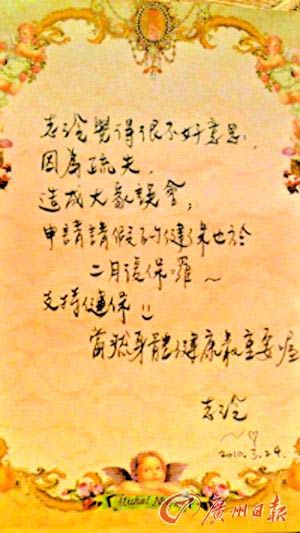 志玲覺得很不好意思,
因為疏失,
造成大家誤會,
申請請假的健保也於
二月復保囉~
支持健保!!
當然身體健康最重要喔
志玲
~♡
2010.3.24.
廣州日報